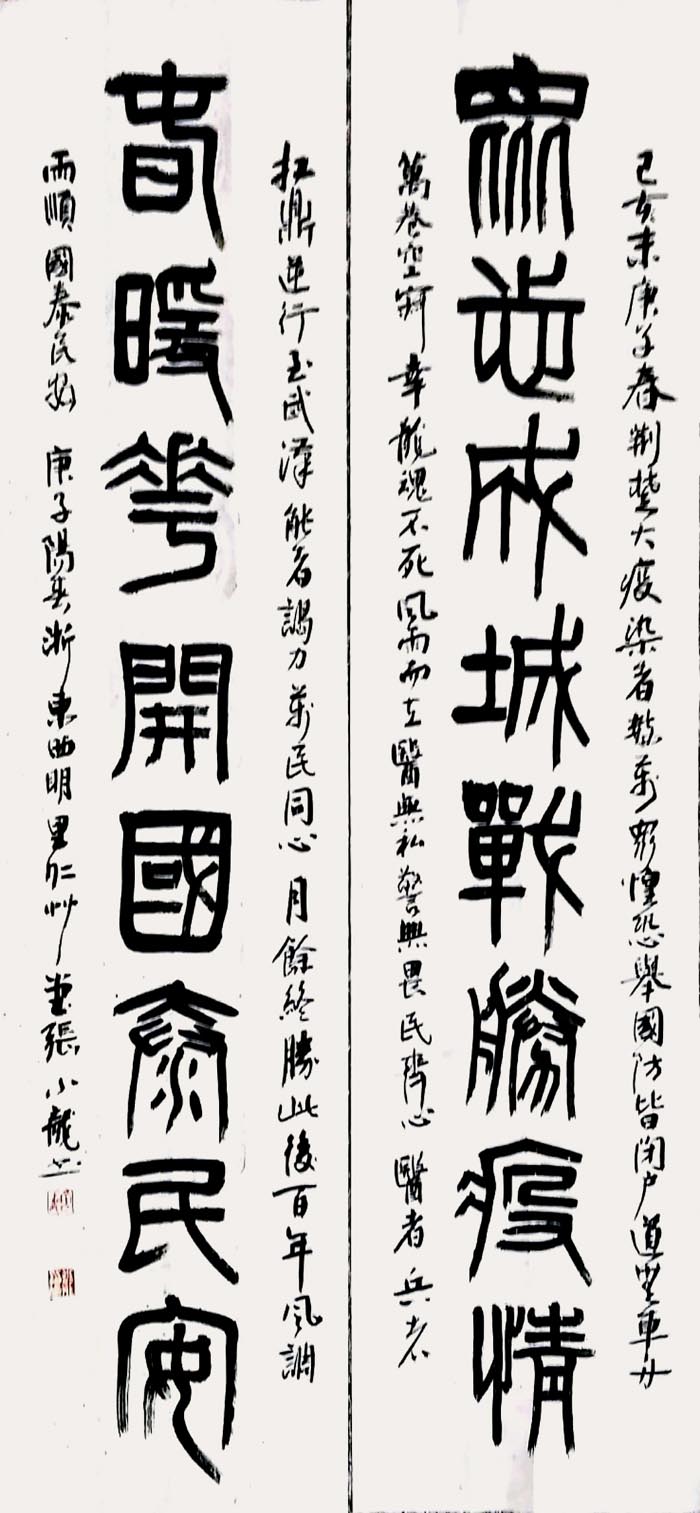 己亥末庚子春荆楚大疫染者數萬衆惶恐舉國防皆閉户道無車舟
衆志成城戰勝疫情
萬巷空寂幸龍魂不死風雨而立醫無私警無畏民齊心醫者兵者
扛鼎逆行至武漢能者竭力萬民同心月餘終勝此後百年風調
春暖華開國泰民安
雨順國泰民安 庚子陽春浙東四明里仁艸堂張小龍